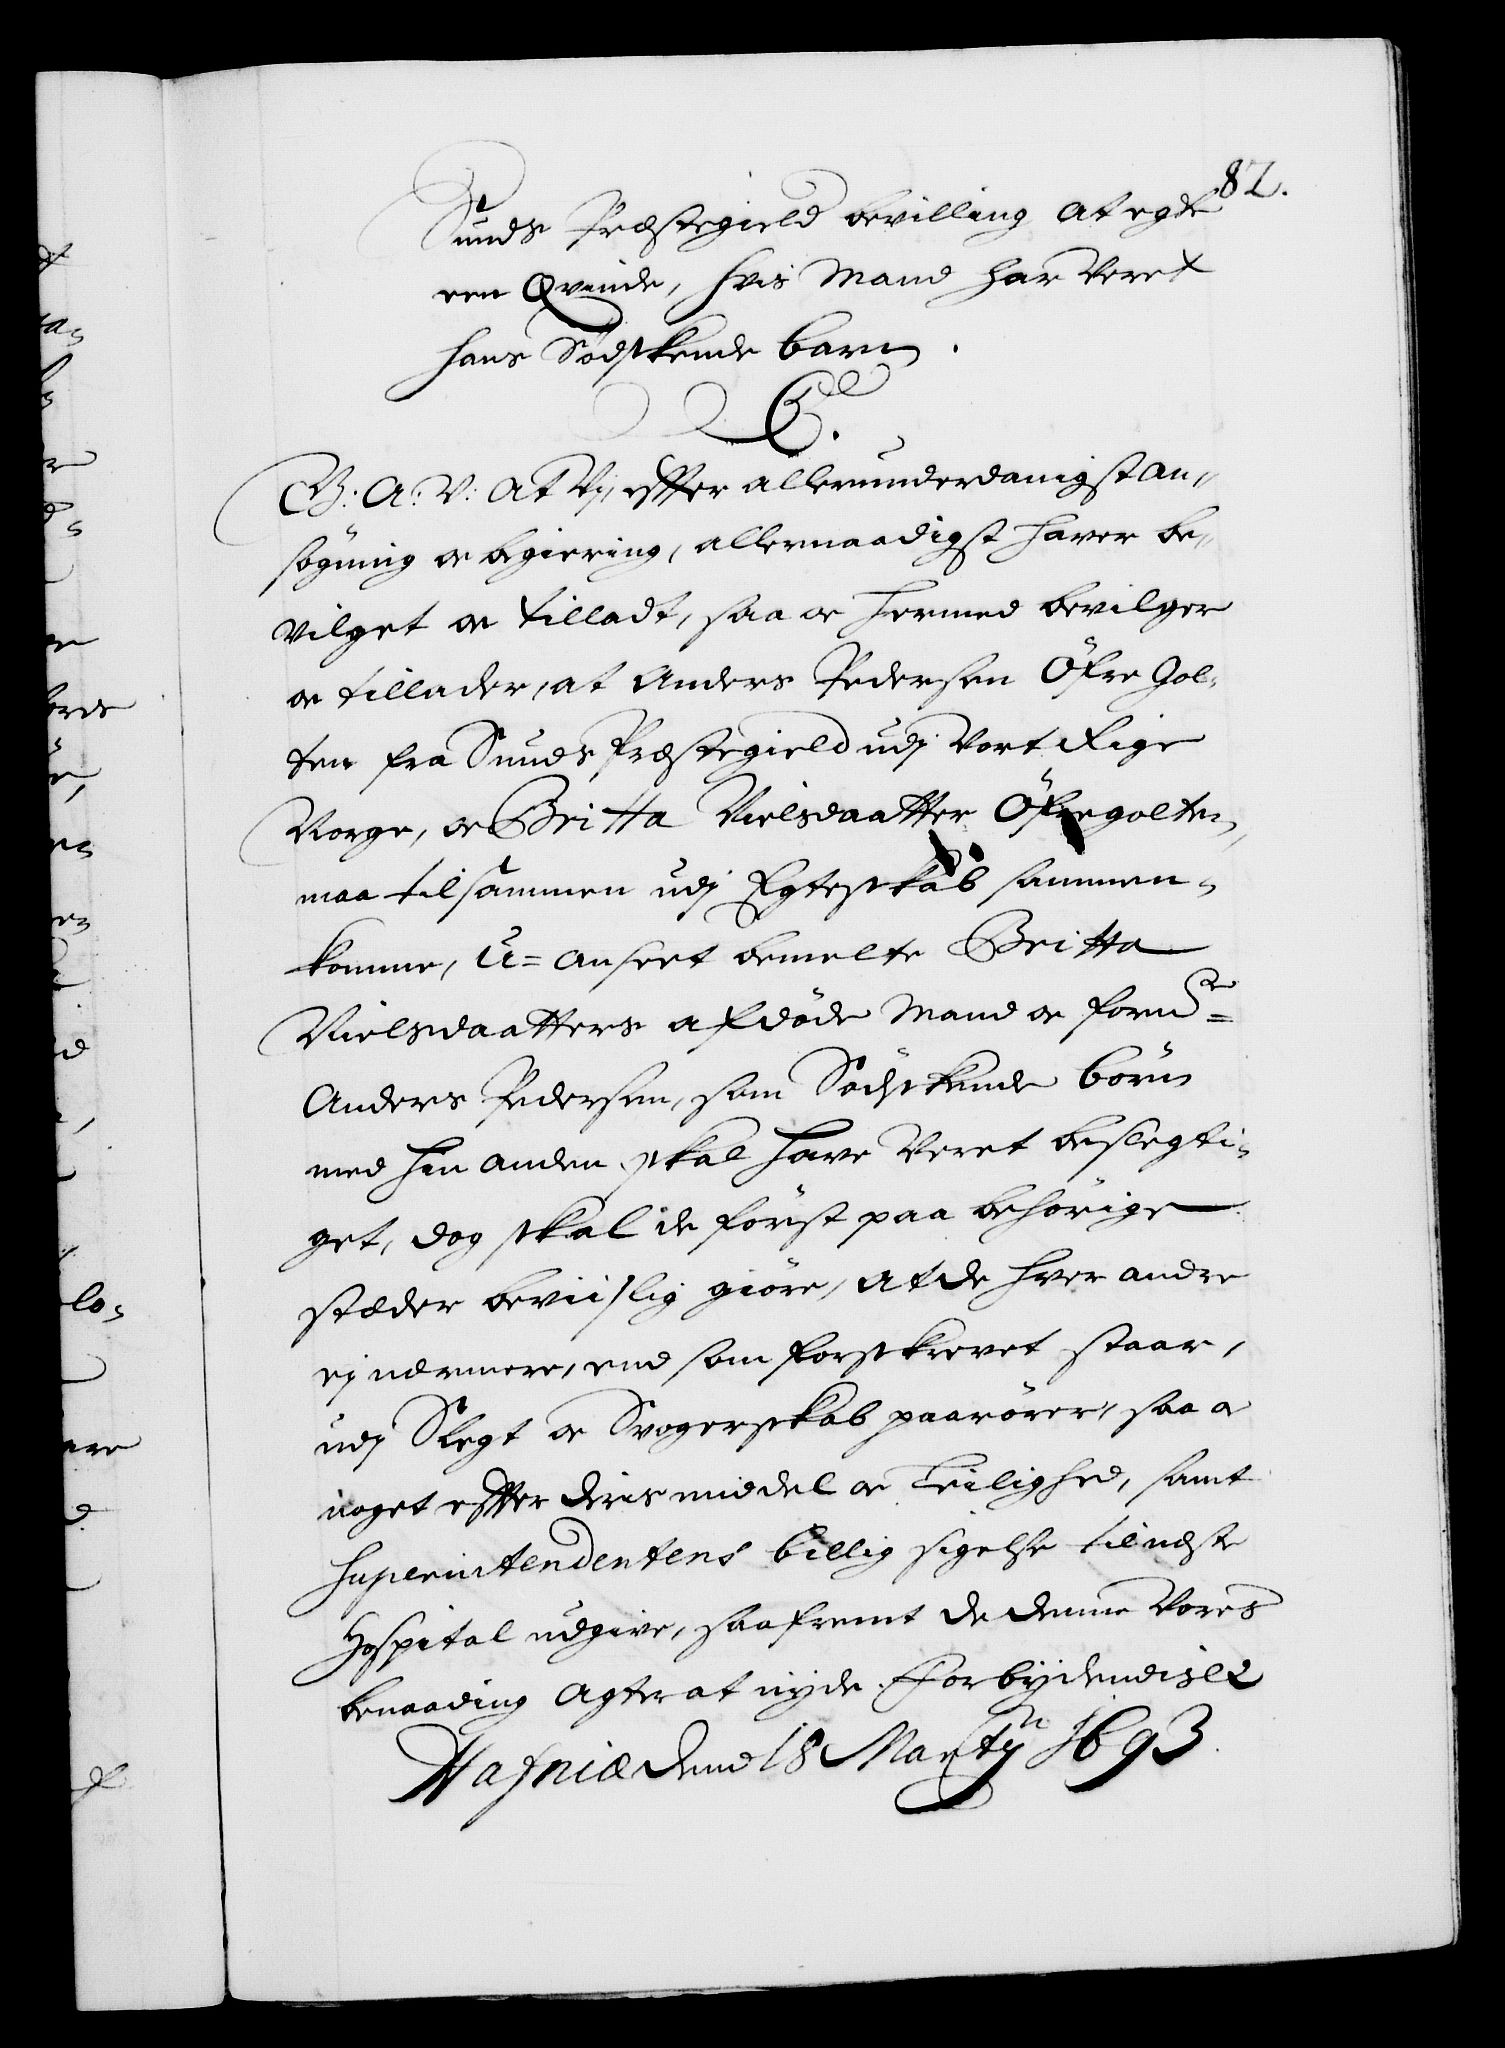 82.
Sunds Præstegield bevilling at egte
een Qvinde, hvis Mand har veret
hans Södskende barn.
C.
G: A: V: At Vj, effter allerunderdanigst an-
sögning oc begiering, allernaadigst haver be-
vilget oc tilladt, saa oc hermed bevilger
oc tillader, at Anders Pedersen Öfre Gol-
ten fra Sunds Præstegield udj Vort Rige
Norge, oc Britta Nielsdaatter Öfregolten,
maa tilsammen udj Egteskab sammen-
komme, U=anseet bemelte Britta
Nielsdaatters afdöde Mand oc fornde
Anders Pedersen, som Södskende börn
med hin anden skal have veret beslegti-
get, dog skal de först paa behörige
stæder beviislig giöre, at de hver andre
ej nærmere, end som forskrevet staar,
udj Slegt oc Svogerskab paarörer, saa oc
noget effter deris middel oc Leilighed, samt
Superintendentens billig sigelse til neste
Hospital udgive, saafremt de denne Vores
benaading agter at nyde. Forbydendis &
Hafniæ dend 18 Martij 1693.
lo-
ere